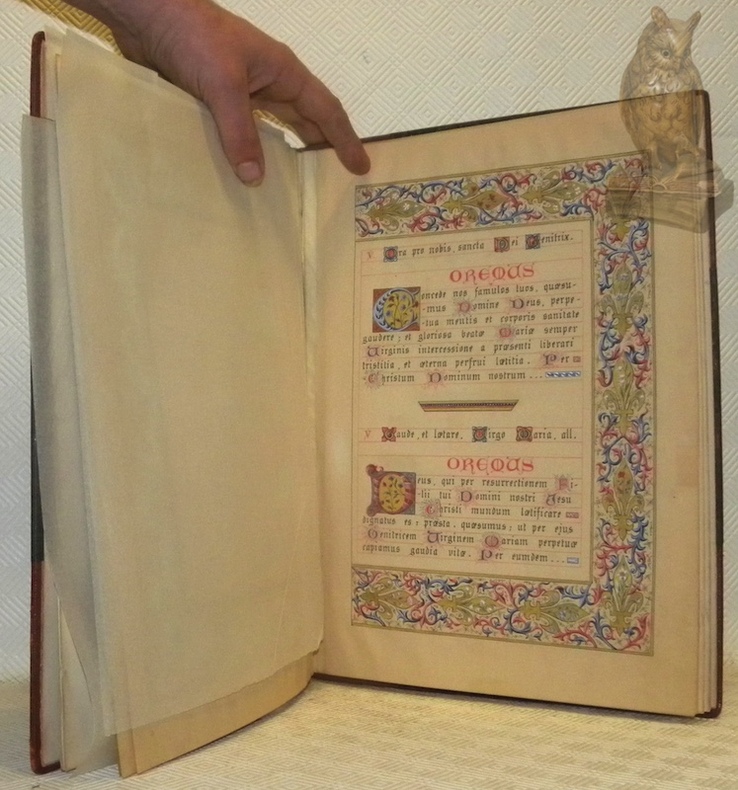 V Ora pro nobis, sancta Dei Genitrix.
OREMUS
Concede nos famulos tuos, quæsu-
-mus Domine Deus, perpe-
-tua mentis et corporis sanitate
gaudere; et gloriosa beatæ Mariæ semper
Virginis intercessione a præsenti liberari
tristitia, et æterna perfrui lætitia. Per
Christum Dominum nostrum ...
V Gaude, et lætare, Virgo Maria, all.
OREMUS
Deus, qui per resurrectionem Fi-
-lii tui Domini nostri Jesu
Christi mundum lætificare
dignatus es: præsta, quæsumus: ut per ejus
Genitricem Virginem Mariam perpetuæ
capiamus gaudia vitæ. Per eumdem ...